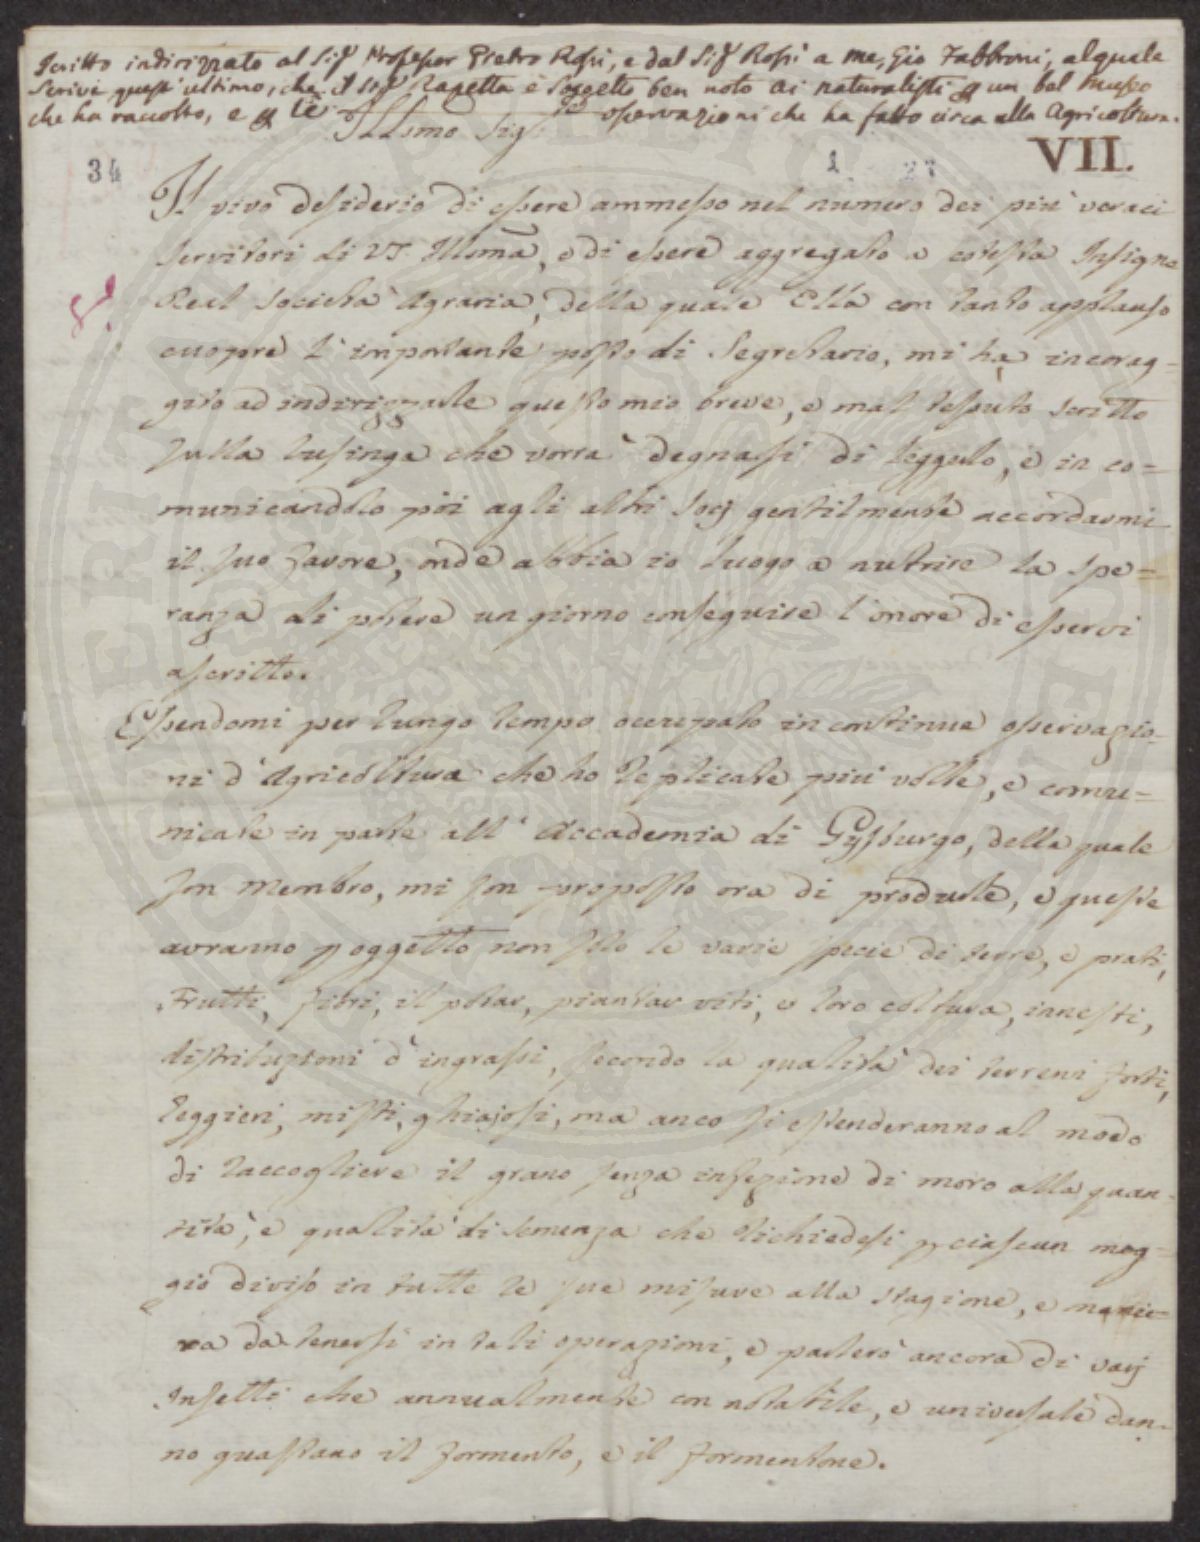 Scritto indirizzato al Sigr Professor Pietro Rossi, e dal Sigr Rossi a me, Gio Fabbroni, al quale
scrive quest' ultimo, che il sigr Rapetta è Soggetto ben noto ai naturalisti p un bel Museo
che ha raccolto, e p le osservazioni che ha fatto circa alla Agricoltura.
Illsmo Sigr
VII.
34
1 27
Il vivo desiderio di essere ammesso nel numero dei più veraci
servitori di VS. Illsma, e di essere aggregato a cotesta Insigne
Real Società Agraria, della quale Ella con tanto applauso
cuopre l' importante posto di Segretario, mi ha incorag=
gito ad indirizzarle questo mio breve, e mal tessuto scritto
sulla lusinga che vorrà degnarsi di leggerlo, e in co=
municandolo poi agli altri Socj gentilmente accordarmi
il suo favore, onde abbia io luogo a nutrire la spe=
ranza di potere un giorno conseguire l'onore di esservi
ascritto.
Essendomi per lungo tempo occupato in continue osservazio=
ni d'Agricoltura che ho replicate più volte, e comu=
nicate in parte all' Accademia di Gysburgo, della quale
son membro, mi son proposto ora di produrle, e queste
avranno p oggetto non solo le varie specie di terre, e prati,
Frutti, fiori, il potar, piantar viti, e loro coltura, innesti,
distribuzioni d'ingrassi, secondo la qualità dei terreni forti,
leggieri, misti, ghiajosi, ma anco si estenderanno al modo
di raccogliere il grano senza infezione di moro alla quan=
tità, e qualità di semenza che richiedesi p ciascun mog=
gio diviso in tutte le sue misure alla stagione, e manie=
ra da tenersi in tali operazioni, e parlerò ancora di varj
Insetti che annualmente con notabile, e universale dan=
no guastano il formento, e il formentone.